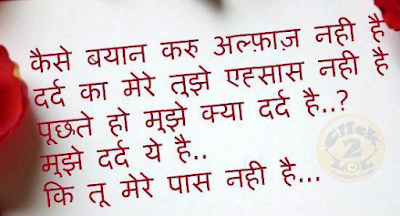 कैसे बयान करु अल्फ़ाज़ नही है
दर्द का मेरे तूझे एह्सास नही है
पूछते हो मूझे क्या दर्द है..?
मूझे दर्द ये है..
कि तू मेरे पास नही है...
Click
2